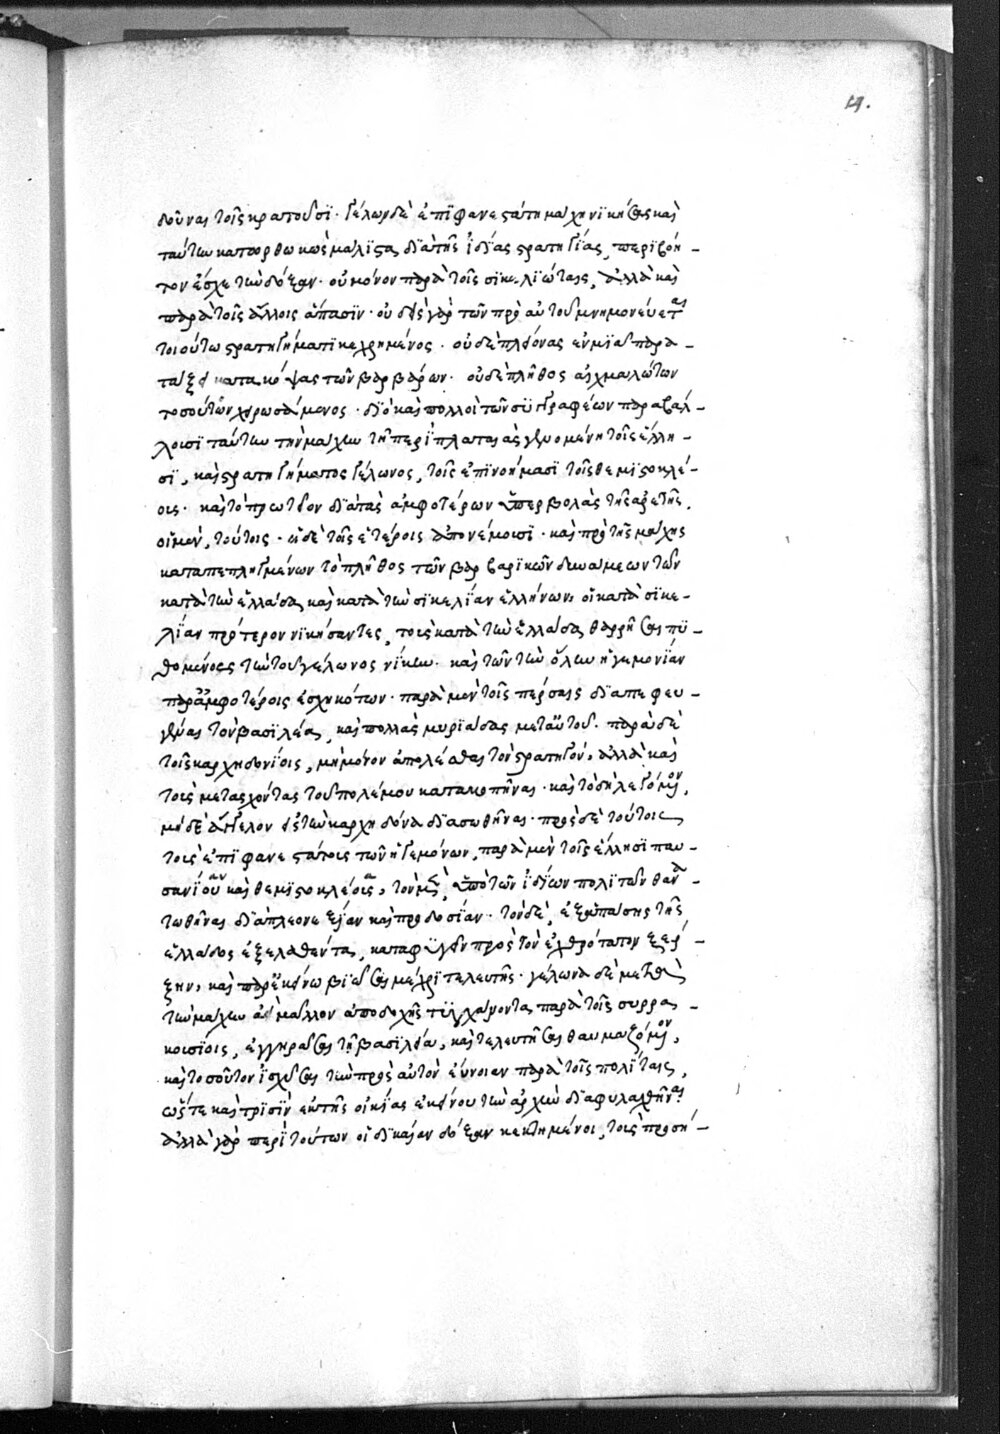 14.
δοῦναι τοῖς κρατοῦσϊ· Γέλων δὲ ἐπϊφανεστάτη μάχη νϊκήσας καὶ
ταύτην κατωρθωκὼς μάλϊστα δϊὰ τῆς ἰδίας στρατηγίας, περϊβόη-
τον ἔσχε τὴν δόξαν· οὐ μόνον παρὰ τοῖς σϊκελϊώταις, ἀλλὰ καὶ
παρὰ τοῖς ἄλλοις ἅπασϊν· οὐδεὶς γὰρ τῶν πρὸ αὐτοῦ μνημονεύεται
τοιούτω στρατηγήματι κεχρημένος· οὐδὲ πλείονας ἐν μϊᾶ παρα-
τάξει κατακόψας τῶν βαρβάρων· οὐδὲ πλῆθος αἰχμαλώτων
τοσούτων χειρωσάμενος· δϊὸ καὶ πολλοὶ τῶν συγγραφέων παραβάλ-
λουσϊ ταύτην τὴν μάχην τῇ περὶ πλαταιὰς γενομένη τοῖς ἕλλη-
σϊ, καὶ στρατηγήματος Γέλωνος, τοῖς ἐπϊνοήμασϊ τοῖς θεμϊστοκλέ-
οις· καὶ τὸ πρωτεῖον δϊὰ τὰς ἀμφοτέρων ὑπερβολὰς τῆς ἀρετῆς,
οἱ μὲν, τούτοις· οἱ δὲ τοῖς ἑτέροις ἀπονέμουσϊ· καὶ πρὸ τῆς μάχης
καταπεπληγμένων τὸ πλῆθος τῶν βαρβαρϊκῶν δυνάμεων τῶν
κατὰ τὴν ἑλλάδα καὶ κατὰ τὴν σϊκελΐαν ἑλλήνων, οἱ κατὰ σϊκε-
λΐαν πρότερον νϊκήσαντες, τοὺς κατὰ τὴν ἑλλάδα θαρρῆσαι πυ-
θομένους τὴν τοῦ γέλωνος νίκην· καὶ τῶν τὴν ὅλην ἡγεμονΐαν
παρ' ἀμφοτέροις ἐσχηκότων· παρὰ μὲν τοῖς πέρσαις δϊαπεφευ-
γέναι τὸν βασϊλέα, καὶ πολλὰς μυρϊάδας μετ' αὐτοῦ· παρὰ δὲ
τοῖς καρχηδονίοις, μὴ μόνον ἀπολέσθαι τὸν στρατηγόν, ἀλλὰ καὶ
τοὺς μετασχόντας τοῦ πολέμου κατακοπῆναι· καὶ τὸ δὴ λεγόμενον,
μηδὲ ἄγγελον εἰς τὴν καρχηδόνα δϊασωθῆναι· πρὸς δὲ τούτοις
τοὺς ἐπϊφανεστάτους τῶν ἡγεμόνων, παρὰ μὲν τοῖς ἕλλησϊ παυ-
σανίου καὶ θεμϊστοκλέους, τὸν μὲν, ὑπὸ τῶν ἰδίων πολϊτῶν θανα-
τωθῆναι δϊὰ πλεονεξίαν καὶ προδοσίαν· τὸν δὲ, ἐξ ἁπάσης τῆς
ἑλλάδος ἐξελαθέντα, καταφυγεῖν πρὸς τὸν ἐχθρότατον ξέρ-
ξην, καὶ παρ' ἐκείνω βϊῶσαι μέχρϊ τελευτῆς· γέλωνα δὲ μετὰ
τὴν μάχην ἀεὶ μᾶλλον ἀποδοχῆς τυγχάνοντα παρὰ τοῖς συρρα-
κουσίοις, ἐγγηρᾶσαι τῇ βασϊλεία, καὶ τελευτῆσαι θαυμαζόμενον,
καὶ τοσοῦτον ἰσχῦσαι τὴν πρὸς αὐτὸν εὔνοιαν παρὰ τοῖς πολίταις,
ὥστε καὶ τρϊσϊν ἐκ τῆς οἰκίας ἐκείνου τὴν ἀρχὴν δϊαφυλαχθῆναι·
ἀλλὰ γὰρ περὶ τούτων οἱ δϊκαίαν δόξαν κεκτημένοι, τοὺς προσή-